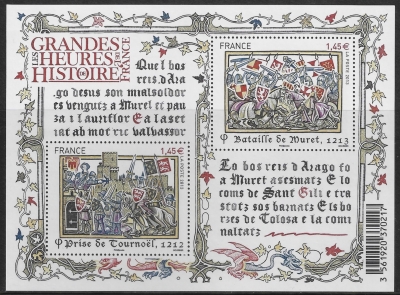 LES
GRANDES
HEURES
DE L'
HISTOIRE
DE FRANCE
Quel bos
reis d'Ara
go desus son
mialsoldor
es vengutz a Muret et pau
za i l'auriflor E a laset
iat ab mot ric valbassor
FRANCE
1,45€
LA POSTE 2013
φ Bataille de Muret, 1213
FRANCE
1,45€
LA POSTE 2013
φ Prise de Tournoël, 1212
Lo bos reis d'Arago fo
a Muret asesmatz E lo
coms de Sant Gili e tra
stotz sos barnatz E ls bo
rzes de Tolosa e la com
naltatz
3 561920 370217